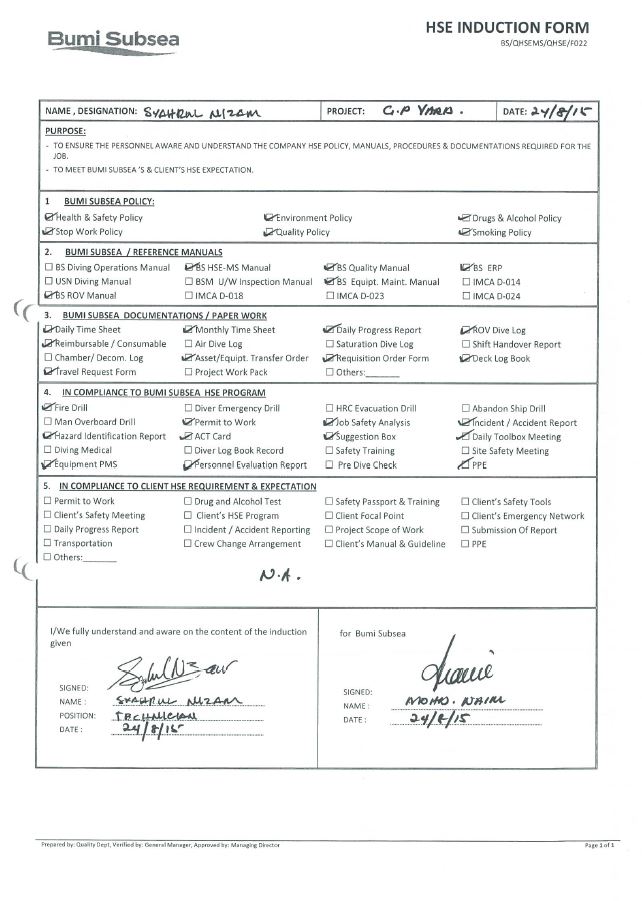 Bumi Subsea
HSE INDUCTION FORM
BS/QHSEMS/QHSE/F022
NAME , DESIGNATION: SYAHRUL NIZAM PROJECT: G.P YARD. DATE: 24/8/15
PURPOSE:
- TO ENSURE THE PERSONNEL AWARE AND UNDERSTAND THE COMPANY HSE POLICY, MANUALS, PROCEDURES & DOCUMENTATIONS REQUIRED FOR THE
JOB.
- TO MEET BUMI SUBSEA 'S & CLIENT'S HSE EXPECTATION.
1 BUMI SUBSEA POLICY:
☑ Health & Safety Policy ☑ Environment Policy ☑ Drugs & Alcohol Policy
☑ Stop Work Policy ☑ Quality Policy ☑ Smoking Policy
2. BUMI SUBSEA / REFERENCE MANUALS
☐ BS Diving Operations Manual ☑ BS HSE-MS Manual ☑ BS Quality Manual ☑ BS ERP
☐ USN Diving Manual ☐ BSM U/W Inspection Manual ☑ BS Equipt. Maint. Manual ☐ IMCA D-014
☑ BS ROV Manual ☐ IMCA D-018 ☐ IMCA D-023 ☐ IMCA D-024
3. BUMI SUBSEA DOCUMENTATIONS / PAPER WORK
☑ Daily Time Sheet ☑ Monthly Time Sheet ☑ Daily Progress Report ☑ ROV Dive Log
☑ Reimbursable / Consumable ☐ Air Dive Log ☐ Saturation Dive Log ☐ Shift Handover Report
☐ Chamber/ Decom. Log ☑ Asset/Equipt. Transfer Order ☑ Requisition Order Form ☑ Deck Log Book
☑ Travel Request Form ☐ Project Work Pack ☐ Others:______
4. IN COMPLIANCE TO BUMI SUBSEA HSE PROGRAM
☑ Fire Drill ☐ Diver Emergency Drill ☐ HRC Evacuation Drill ☐ Abandon Ship Drill
☐ Man Overboard Drill ☑ Permit to Work ☑ Job Safety Analysis ☑ Incident / Accident Report
☑ Hazard Identification Report ☑ ACT Card ☑ Suggestion Box ☑ Daily Toolbox Meeting
☐ Diving Medical ☐ Diver Log Book Record ☐ Safety Training ☐ Site Safety Meeting
☑ Equipment PMS ☑ Personnel Evaluation Report ☐ Pre Dive Check ☑ PPE
5. IN COMPLIANCE TO CLIENT HSE REQUIREMENT & EXPECTATION
☐ Permit to Work ☐ Drug and Alcohol Test ☐ Safety Passport & Training ☐ Client's Safety Tools
☐ Client's Safety Meeting ☐ Client's HSE Program ☐ Client Focal Point ☐ Client's Emergency Network
☐ Daily Progress Report ☐ Incident / Accident Reporting ☐ Project Scope of Work ☐ Submission Of Report
☐ Transportation ☐ Crew Change Arrangement ☐ Client's Manual & Guideline ☐ PPE
☐ Others:______
N.A.
I/We fully understand and aware on the content of the induction
given
SIGNED:
NAME : SYAHRUL NIZAM
POSITION: TECHNICIAN
DATE : 24/8/15
for Bumi Subsea
SIGNED:
NAME : MOHD. NAIM
DATE : 24/8/15
Prepared by: Quality Dept, Verified by: General Manager, Approved by: Managing Director
Page 1 of 1